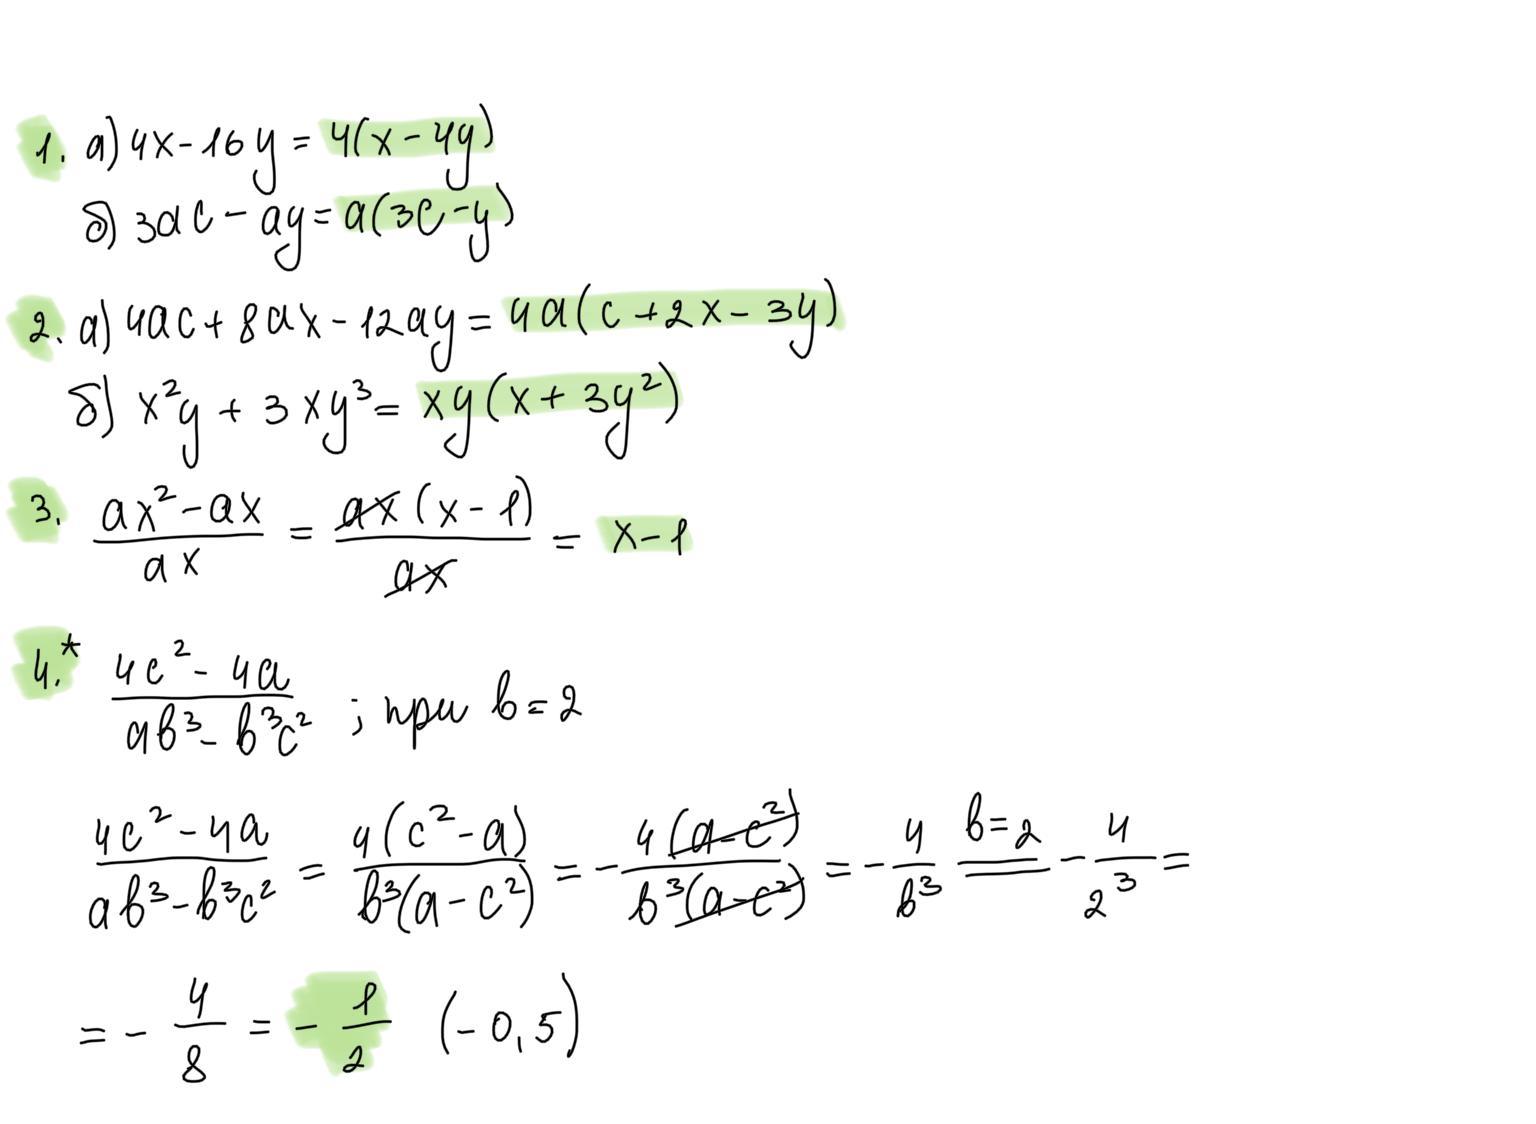 1. а) 4x - 16y = 4(x - 4y)
б) 3ac - ay = a(3c - y)
2. а) 4ac + 8ax - 12ay = 4a(c + 2x - 3y)
б) x²y + 3xy³ = xy(x + 3y²)
3. (ax² - ax)/(ax) = (ax(x - 1))/(ax) = x - 1
4.* (4c² - 4a)/(ab³ - b³c²) ; при b = 2
(4c² - 4a)/(ab³ - b³c²) = (4(c² - a))/(b³(a - c²)) = - (4(a - c²))/(b³(a - c²)) = - 4/b³ b=2 = - 4/2³ =
= - 4/8 = - 1/2 (-0,5)